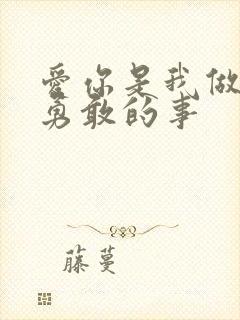 爱你是我做
勇敢的事
藤蔓